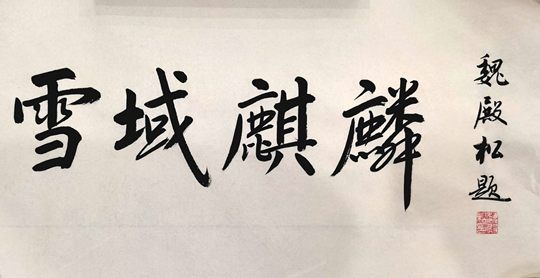 雪域麒麟
魏殿松题